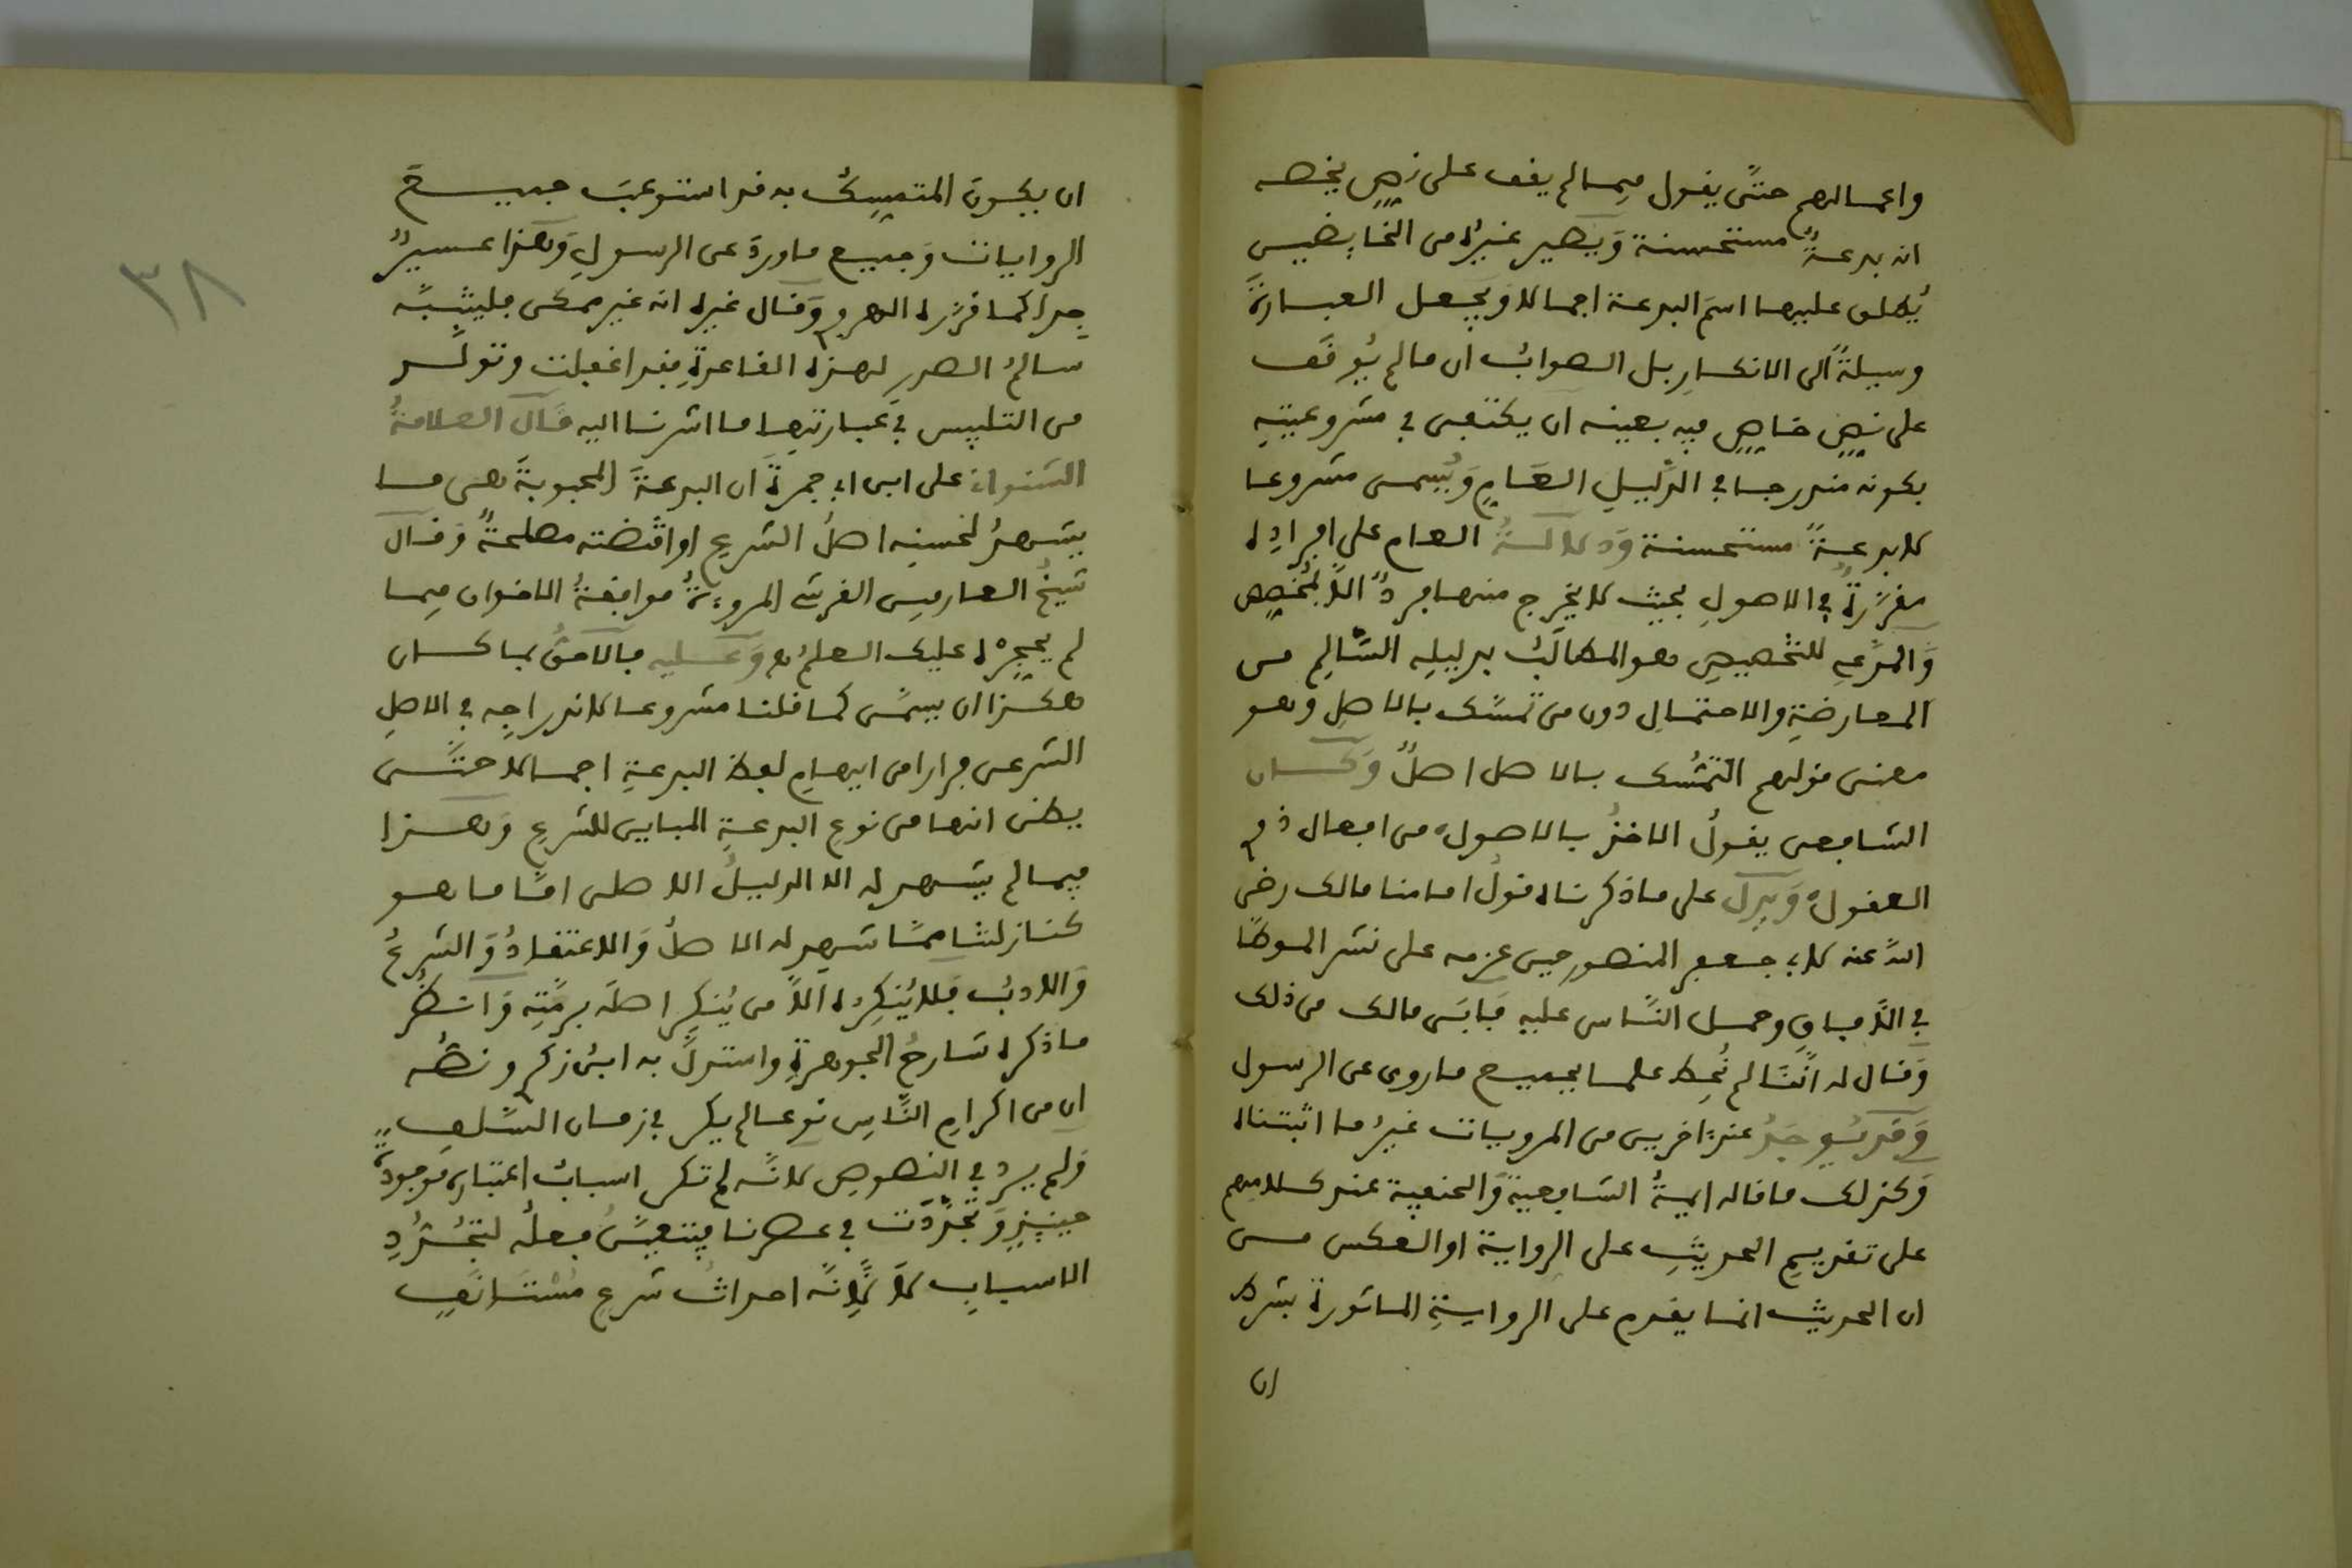 واعمالهم حتَّى يقول فيما لم يقف على نصٍّ يخصه
انه بدعةٌ مستحسنة وَيصير غيرُه من الخايضين
يُطلق عليها اسمَ البدعة اجمالا وَيجعل العبارةَ
وسيلةً الى الانكارِ بل الصوابُ ان ما لم يُوقَف
على نصٍّ خاصٍّ فيه بعينه ان يكتفى في مشروعيتِه
بكونه مندرجا في الدَّليلِ العَامِ وَيُسمى مشروعا
لا بدعةً مستحسنة وَدلالةُ العام على افرادِه
مقرَّرةٌ في الاصولِ بحيث لا يخرج منها فردٌ الاَّ لمُخصِّص
وَالمدَّعِي للتخصيصِ هو المطالَبُ بدليلِه السَّالِمِ من
المعارضةِ والاحتمالِ دون من تمسَّك بالاصلِ وهو
معنى قولهم التَّمسُّك بالاصل اصلٌ وَكان
الشافعى يقولُ الاخذُ بالاصول من افعال ذوي
العقول وَيدل على ما ذكرناه قولُ امامنا مالك رضي
اللهُ عنه لابي جعفر المنصور حين عزمه على نشر الموطَّا
في الاَفاقِ وحمل النَّاس عليهِ فَابَى مالك من ذلك
وَقال له انَّنَا لم نُحِط علما بجميع ما روي عن الرسول
وَقد يُوجَدُ عند اخرين من المرويات غيرُ ما اثبتناه
وَكذلك ما قاله ايمةُ الشافعيةِ وَالحنفية عند كلامِهم
على تقديم الحديثِ على الرواية او العكس من
ان الحديث انما يقدم على الروايةِ الماثورة بشرط
ان
ان يكونَ المتمسِّكُ به قد استوعبَ جميعَ
الروايات وَجميع ما وردَ عن الرسولِ وَهذا عسيرٌ
جِدا كما قرَّره الهروي وَقال غيره انه غير ممكن فليتنبَّه
سالمُ الصدرِ لهذه القاعدةِ فقد اغفلت وتولَّد
من التلبيس في عبارتها ما اشرنا اليه قَال العلامةُ
الشنوانى على ابن ابي جمرةَ ان البدعةَ المحبوبةَ هى ما
يشهدُ لحسنِه اصلُ الشرعِ او اقتضته مصلحةٌ وَقال
شيخُ العارفين القرشى المروءةُ موافقةُ الاخوان فيما
لم يحجِّره عليك العلمُ وَعليه فالاحقُّ بما كان
هكذا ان يسمَّى كما قلنا مشروعا لاندراجِه في الاصلِ
الشرعى فرارا من ايهامِ لفظ البدعةِ اجمالا حتَّى
يظن انها من نوعِ البدعةِ المباين للشرعِ وَهذا
فيما لم يشهد له الا الدليلُ الاصلى امَّا ما هو
كنازلتنا ممَّا شهد له الاصلُ وَالاعتقادُ وَالشرعُ
وَالادبُ فَلا يُنكِرُه الاَّ من يُنكِر اصلَه برمَّتِه وَانظُر
ما ذكره شارحُ الجوهرةِ واستدلَّ به ابنُ زكري ونصُّه
ان من اكرامِ النَّاسِ نوعا لم يكن في زمان السَّلفِ
وَلم يرد في النصوصِ لانَّه لم تكن اسبابُ اعتباره موجودةً
حينئِذٍ وَتجدَّدَت في عصرنا فيتعيَّنُ فعلُه لتجدُّدِ
الاسبابِ لاَ لِاَنَّه احداثُ شرعٍ مُسْتَانَفٍ
٣٨